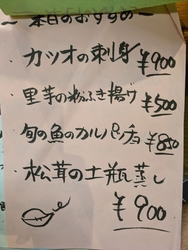 〜本日のおすすめ〜
・カツオの刺身 ¥900
・里芋の粉ふき揚げ ¥500
・旬の魚のカルパッチョ ¥850
・松茸の土瓶蒸し
¥900